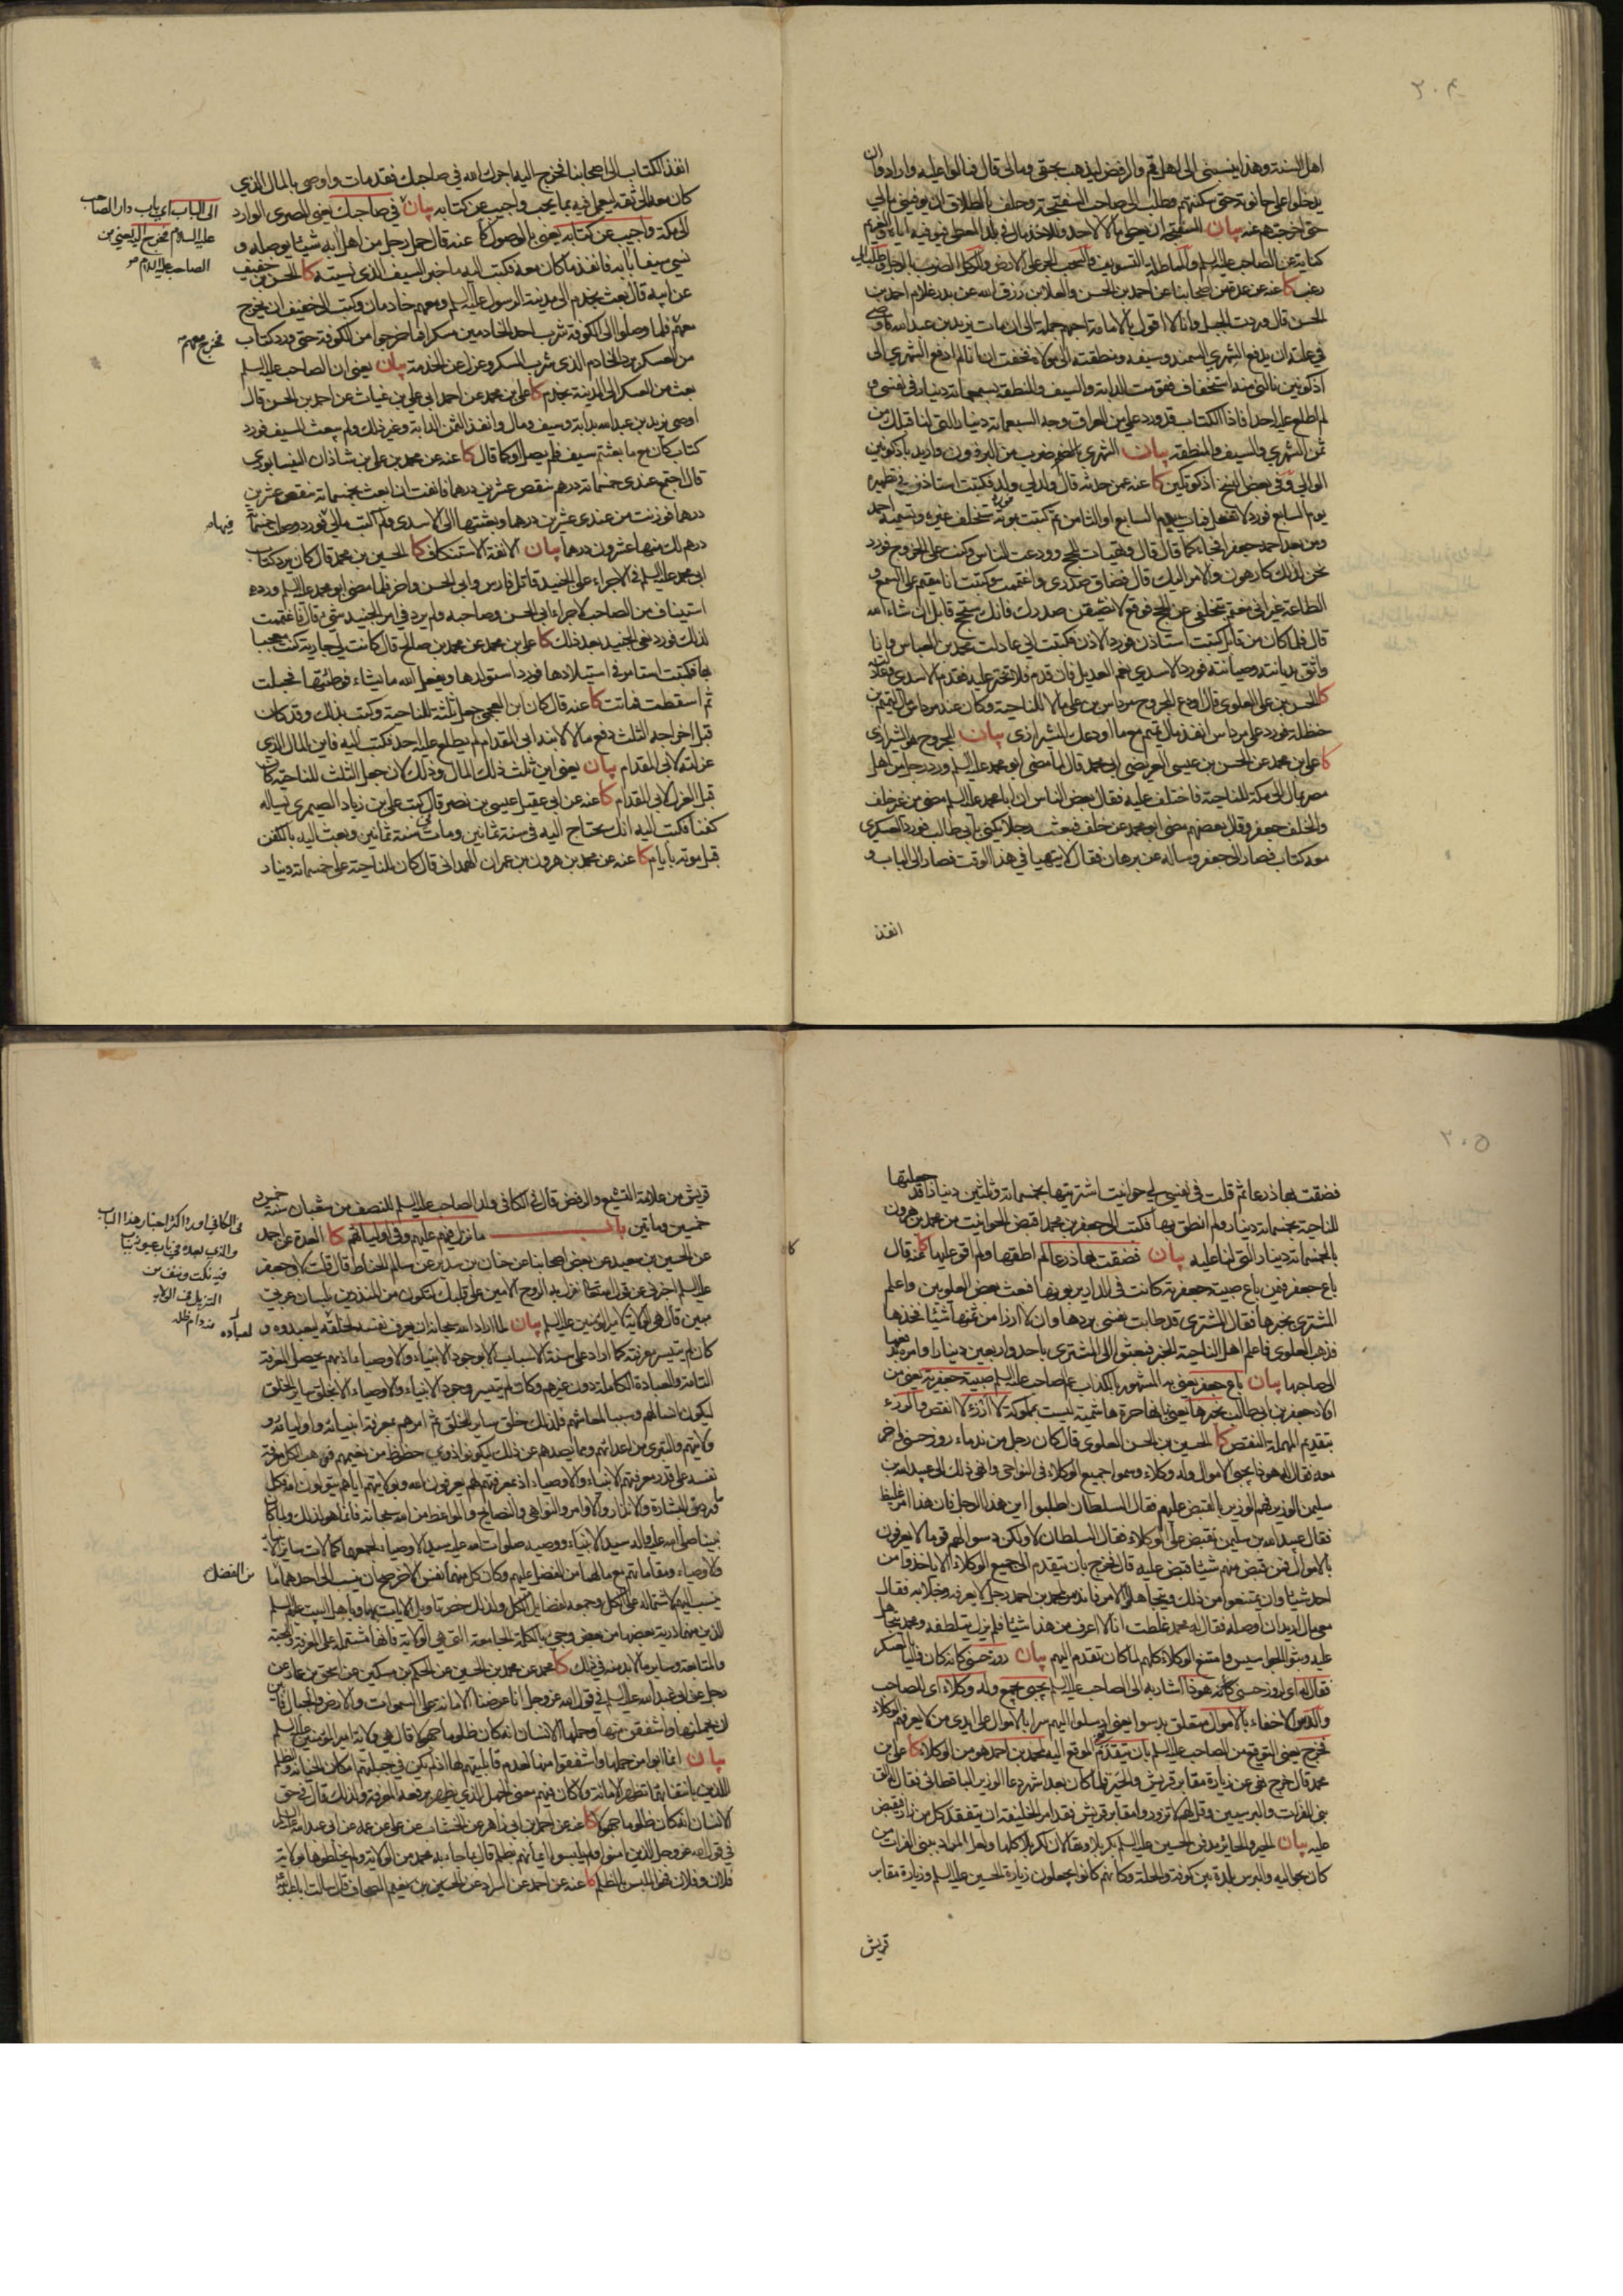 ٣٠٤
اهل السنة وهذا ينسبنى الى اهل قم والرفض ليذهب بحقى ومالى قال فمالوا عليه وارادوا ان
يدخلوا على حانوته حتى سكنتهم وطلب الى صاحب السفتجة وحلف بالطلاق ان يوفينى مالى
حتى اخرجتهم عنه بيان السفتجة ان يعطى مالا لاحد وللاخذ مال فى بلد المعطى فيوفيه اياه ثم والغريم
كناية عن الصاحب عليه السلم والمماطلة التسويف والسحب الجر على الارض والركل الضرب بالرجل
كا عنه عن عدة من اصحابنا عن احمد بن الحسن والعلا بن رزق الله عن بدر غلام احمد بن
الحسن قال وردت الجبل وانا لا اقول بالامامة احبهم جملة الى ان مات يزيد بن عبد الله فاوصى
فى علته ان يدفع الشهرى السمند وسيفه ومنطقته الى مولاه فخفت ان انا لم ادفع الشهرى الى
اذكوتكين نالنى منه استخفاف فقومت الدابة والسيف والمنطقة بسبعمائة دينار فى نفسى و
لم اطلع عليه احدا فاذا الكتاب قد ورد على من العراق وجه السبعمائة دينار التى لنا قبلك من
ثمن الشهرى والسيف والمنطقة بيان الشهرى بالضم ضرب من البرذون واريد باذكوتين
الوالى وفى بعض النسخ اذكوتكين كا عنه عمن حدثه قال ولد لى ولد فكتبت استاذن فى تطهيره
يوم السابع فورد لا تفعل فمات يوم السابع او الثامن ثم كتبت بموته فورد ستخلف غيره وتسميه احمد
ومن بعد احمد جعفرا فجاء كما قال قال وتهيات للحج وودعت الناس وكنت على الخروج فورد
نحن لذلك كارهون والامر اليك قال فضاق صدرى واغتممت وكتبت انا مقيم على السمع و
الطاعة غير انى مغتم بتخلفى عن الحج فوقع لا يضيقن صدرك فانك ستحج قابل ان شاء الله
قال فلما كان من قابل كتبت استاذن فورد الاذن فكتبت انى عادلت محمد بن العباس وانا
واثق بديانته وصيانته فورد الاسدى نعم العديل فان قدم فلا تختر عليه فقدم الاسدى وعادلته
كا الحسن بن على العلوى قال اودع المجروح مرداس بن على مالا للناحية وكان عند مرداس مال لتميم بن
حنظلة فورد على مرداس انفذ مال تميم مع ما اودعك الشيرازى بيان المجروح هو الشيرازى
كا على بن محمد عن الحسن بن عيسى العريضى ابى محمد قال لما مضى ابو محمد عليه السلم ورد رجل من اهل
مصر بمال الى مكة للناحية فاختلف عليه فقال بعض الناس ان ابا محمد عليه السلم مضى من غير خلف
والخلف جعفر وقال بعضهم مضى ابو محمد عن خلف فبعث رجلا يكنى بابى طالب فورد العسكر
معه كتاب فصار الى جعفر وساله عن برهان فقال لا يتهيا فى هذا الوقت فصار الى الباب و
انفذ
انفذ الكتاب الى اصحابنا فخرج اليه اجرك الله فى صاحبك فقد مات واوصى بالمال الذى
كان معه الى ثقة ليعمل فيه بما يحب واجيب عن كتابه بيان فى صاحبك يعنى المصرى الوارد
الى مكة واجيب عن كتابه يعنى بالوصول كا عنه قال حمل رجل من اهل ابه شيئا يوصله و
نسى سيفا بابه فانفذ ما كان معه فكتب اليه ما خبر السيف الذى نسيته كا الحسن بن خفيف
عن ابيه قال بعث بخدم الى مدينة الرسول عليه السلم ومعهم خادمان وكتب الى خفيف ان يخرج
معهم فلما وصلوا الى الكوفة شرب احد الخادمين مسكرا فما خرجوا من الكوفة حتى ورد كتاب
من العسكر برد الخادم الذى شرب المسكر وعزل عن الخدمة بيان يعنى ان الصاحب عليه السلم
بعث من العسكر الى المدينة بخدم كا على بن محمد عن احمد ابى على بن غياث عن احمد بن الحسن قال
اوصى يزيد بن عبد الله بدابة وسيف ومال وانفذ ثمن الدابة وغير ذلك ولم يبعث السيف فورد
كتاب كان مع ما بعثتم سيف فلم يصل او كما قال كا عنه عن محمد بن على بن شاذان النيسابورى
قال اجتمع عندى خمسمائة درهم تنقص عشرين درهما فانفت ان ابعث بخمسمائة تنقص عشرين
درهما فوزنت من عندى عشرين درهما وبعثتها الى الاسدى ولم اكتب مالى فيها فورد وصلت خمسمائة
درهم لك منها عشرون درهما بيان الانفة الاستنكاف كا الحسين بن محمد قال كان يرد كتاب
ابى محمد عليه السلم فى الاجراء على الجنيد قاتل فارس وابى الحسن واخر فلما مضى ابو محمد عليه السلم ورد
استيناف من الصاحب لاجراء ابى الحسن وصاحبه ولم يرد فى امر الجنيد شىء قال فاغتممت
لذلك فورد نعى الجنيد بعد ذلك كا على بن محمد عن محمد بن صالح قال كانت لى جارية كنت معجبا
بها فكتبت استامر فى استيلادها فورد استولدها ويفعل الله ما يشاء فوطئتها فحبلت
ثم اسقطت فماتت كا عنه قال كان ابن العجمى جعل ثلثه للناحية وكتب بذلك وقد كان
قبل اخراجه الثلث دفع مالا لابنه ابى المقدام لم يطلع عليه احد فكتب اليه فاين المال الذى
عزلته لابى المقدام بيان يعنى اين ثلث ذلك المال وذلك لان جعل الثلث للناحية كان
قبل العزل لابى المقدام كا عنه عن ابى عقيل عيسى بن نصر قال كتب على بن زياد الصيمرى يساله
كفنا فكتب اليه انك تحتاج اليه فى سنة ثمانين ومات فى سنة ثمانين وبعث اليه بالكفن
قبل موته بايام كا عنه عن محمد بن هرون بن عمران الهمدانى قال كان للناحية على خمسمائة دينار
الى الباب اى باب دار الصاحب
عليه السلام فخرج اليه يعنى من
الصاحب عليه السلام
فخرج معهم
فيها
٣٠٥
فضقت بها ذرعا ثم قلت فى نفسى لى حوانيت اشتريتها بخمسمائة وثلثين دينارا قد جعلتها
للناحية بخمسمائة دينار ولم انطق بها فكتب الى جعفر بن محمد اقبض الحوانيت من محمد بن هرون
بالخمسمائة دينار التى لنا عليه بيان فضقت بها ذرعا لم اطقها ولم اقو عليها كا عنه قال
باع جعفر فيمن باع صبية جعفرية كانت فى الدار يربونها فبعث بعض العلويين واعلم
المشترى بخبرها فقال المشترى قد طابت نفسى بردها وان لا ارزا من ثمنها شيئا فخذها
فذهب العلوى فاعلم اهل الناحية الخبر فبعثوا الى المشترى باحد واربعين دينارا وامروه بدفعها
الى صاحبها بيان باع جعفر يعنى به المشهور بالكذاب عم صاحب عليه السلم صبية جعفرية يعنى من
اولاد جعفر بن ابى طالب بخبرها يعنى بانها حرة هاشمية ليست بمملوكة لا ارزء لا انقص والرزء
بتقديم المهملة النقص كا الحسين بن الحسن العلوى قال كان رجل من ندماء روز حسنى واخر
معه فقال له هوذا يجبى الاموال وله وكلاء وسموا جميع الوكلاء فى النواحى وانهى ذلك الى عبيد الله بن
سليمن الوزير فهم الوزير بالقبض عليهم فقال السلطان اطلبوا اين هذا الرجل فان هذا امر غليظ
فقال عبيد الله بن سليمن نقبض على الوكلاء فقال السلطان لا ولكن دسوا لهم قوما لا يعرفون
بالاموال فمن قبض منهم شيئا قبض عليه قال فخرج بان يتقدم الى جميع الوكلاء الا ياخذوا من
احد شيئا وان يمتنعوا من ذلك ويتجاهلوا الامر فاندس لمحمد بن احمد رجل لا يعرفه وخلا به فقال
معى مال اريد ان اوصله فقال له محمد غلطت انا لا اعرف من هذا شيئا فلم يزل يتلطفه ومحمد يتجاهل
عليه وبثوا الجواسيس وامتنع الوكلاء كلهم لما كان تقدم اليهم بيان روز حسنى كانه كان واليا بالعسكر
فقال له اى لروز حسنى كانه هوذا اشار به الى الصاحب عليه السلم يجبى يجمع وله وكلاء اى للصاحب
والدس الاخفاء بالاموال متعلق بدسوا يعنى ارسلوا اليهم سرا بالاموال على ايدى من لا يعرفهم الوكلاء
فخرج يعنى التوقيع من الصاحب عليه السلم بان يتقدم الموقع اليه محمد بن احمد هو من الوكلاء كا على بن
محمد قال خرج نهى عن زيارة مقابر قريش والحير فلما كان بعد اشهر دعا الوزير الباقطائى فقال له الق
بنى الفرات والبرسيين وقل لهم لا تزوروا مقابر قريش فقد امر الخليفة ان يتفقد كل من زار فيقبض
عليه بيان الحير والحاير يدفن الحسين عليه السلم بكربلا ويقالان لكربلا كلها ولعل المراد ببنى الفرات من
كان بحواليه والبرس بلدة بين كوفة والحلة وكانهم كانوا يجعلون زيارة الحسين عليه السلم وزيارة مقابر
قريش
قريش من علامة التشيع والرفض قال فى الكافى ولد الصاحب عليه السلم للنصف من شعبان سنة خمس و
خمسين ومايتين باب ما نزل فيهم عليهم وفى اوليائهم كا العدة عن احمد
عن الحسين بن سعيد عن بعض اصحابنا عن حنان بن سدير عن سالم الحناط قال قلت لابى جعفر
عليه السلم اخبرنى عن قول الله تعالى نزل به الروح الامين على قلبك لتكون من المنذرين بلسان عربى
مبين قال هى الولاية لامير المؤمنين عليه السلم بيان لما اراد الله سبحانه ان يعرف نفسه لخلقه ليعبدوه و
كان لم يتيسر معرفته كما اراد على سنة الاسباب الا بوجود الانبياء والاوصياء اذ بهم يحصل المعرفة
التامة والعبادة الكاملة دون غيرهم وكان لم يتيسر وجود الانبياء والاوصياء الا بخلق ساير الخلق
ليكون انسا لهم وسببا لمعاشهم فلذلك خلق ساير الخلق ثم امرهم بمعرفة انبيائه واوليائه و
ولايتهم والتبرى من اعدائهم ومما يصدهم عن ذلك ليكونوا ذوى حظوظ من نعيمهم فوهب الكل معرفة
نفسه على قدر معرفتهم الانبياء والاوصياء اذ بمعرفتهم لهم يعرفون الله وبولايتهم اياهم يتولون الله فكل
ما ورد من البشارة والانذار والاوامر والنواهى والنصايح والمواعظ من الله سبحانه فانما هو لذلك ولما كان
نبينا صلى الله عليه واله سيد الانبياء ووصيه صلوات الله عليه سيد الاوصياء لجمعهما كمالات ساير الانبياء
والاوصياء ومقاماتهم مع ما لهما من الفضل عليهم وكان كل منهما نفس الاخر صح ان ينسب الى احدهما ما
ينسب اليهم لاشتماله على الكل وجمعه لفضايل الكل ولذلك خص تاويل الايات بهما وباهل البيت عليهم السلم
الذين هم ذرية بعضها من بعض وجىء بالكلمة الجامعة التى هى الولاية فانها مشتملة على المعرفة والمحبة
والمتابعة وساير ما لا بد منه فى ذلك كا محمد عن محمد بن الحسين عن الحكم بن مسكين عن اسحق بن عمار عن
رجل عن ابى عبد الله عليه السلم فى قول الله عز وجل انا عرضنا الامانة على السموات والارض والجبال فابين
ان يحملنها واشفقن منها وحملها الانسان انه كان ظلوما جهولا قال هى ولاية امير المؤمنين عليه السلم
بيان انما ابوا من حملها واشفقوا منها لعدم قابليتهم لها اذ لم تكن فى جبلتهم امكان الخيانة والظلم
الانسان انه كان ظلوما جهولا كا عنه عن احمد بن ابى زاهر عن الخشاب عن على عن عمه عن ابى عبد الله عليه السلم
فى قول الله عز وجل الذين امنوا ولم يلبسوا ايمانهم بظلم قال بما جاء به محمد من الولاية ولم يخلطوها بولاية
فلان وفلان فهو الملبس بالظلم كا عنه عن احمد عن السراد عن الحسين بن نعيم الصحاف قال سالت ابا عبد الله
فى الكافى اورد اكثر اخبار هذا الباب
والذى بعده فى باب عنوانه باب
فيه نكت ونتف من
التنزيل فى الولاية
منه دام ظله
لعباده
من الفضل